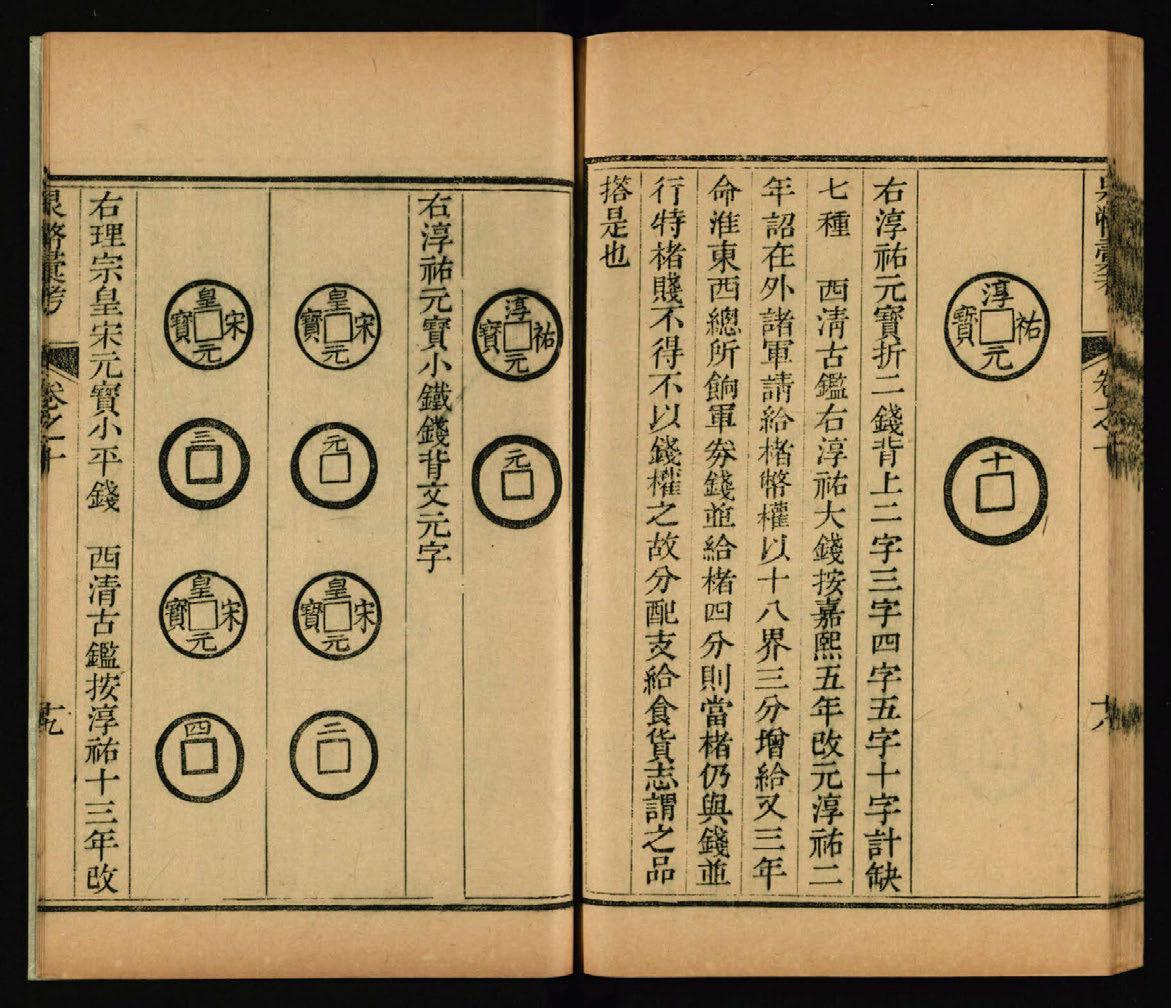 泉幣彙考
卷之十
十八
淳祐元寶
十
右淳祐元寶折二錢背上二字三字四字五字十字計缺
七種　西清古鑑右淳祐大錢按嘉熙五年改元淳祐二
年詔在外諸軍請給楮幣權以十八界三分增給又三年
命淮東西總所餉軍券錢並給楮四分則當楮仍與錢並
行特楮賤不得不以錢權之故分配支給食貨志謂之品
撘是也
淳祐元寶
元
右淳祐元寶小鐵錢背文元字
皇宋元寶
元
皇宋元寶
二
皇宋元寶
三
皇宋元寶
四
右理宗皇宋元寶小平錢　西清古鑑按淳祐十三年改
泉幣彙考
卷之十
十九